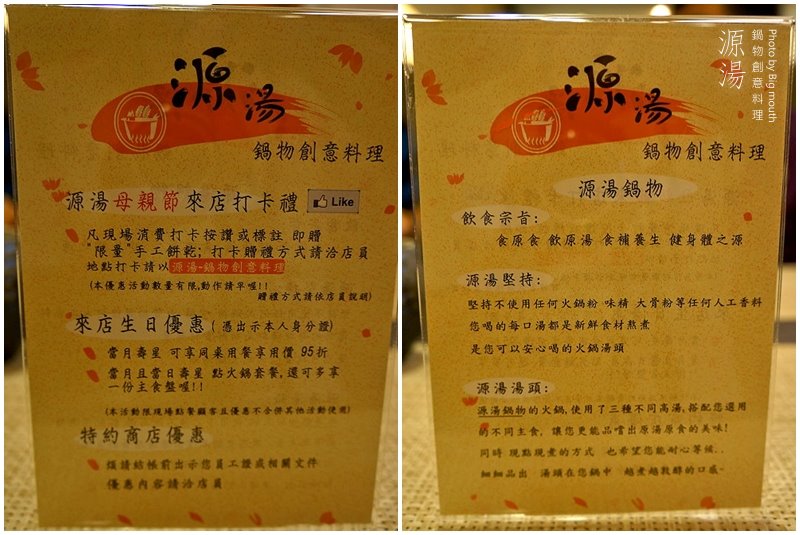 源湯
鍋物創意料理
源湯母親節來店打卡禮 Like
凡現場消費打卡按讚或標註 即贈
"限量"手工餅乾; 打卡贈禮方式請洽店員
地點打卡請以源湯-鍋物創意料理
(本優惠活動數量有限,動作請早喔!!
贈禮方式請依店員說明)
來店生日優惠(憑出示本人身分證)
當月壽星 可享同桌用餐享用價 95折
當月且當日壽星 點火鍋套餐,還可多享
一份主食盤喔!!
(本活動限現場點餐顧客且優惠不合併其他活動使用)
特約商店優惠
煩請結帳前出示您員工證或相關文件
優惠內容請洽店員
源湯
鍋物創意料理
源湯鍋物
飲食宗旨:
食原食 飲原湯 食補養生 健身體之源
源湯堅持:
堅持不使用任何火鍋粉 味精 大骨粉等任何人工香料
您喝的每口湯都是新鮮食材熬煮
是您可以安心喝的火鍋湯頭
源湯湯頭:
源湯鍋物的火鍋,使用了三種不同高湯,搭配您選用
的不同主食, 讓您更能品嚐出原湯原食的美味!
同時 現點現煮的方式 也希望您能耐心等候..
細細品出 湯頭在您鍋中 越煮越敦醇的口感~
源湯
鍋物創意料理
Photo by Big mouth